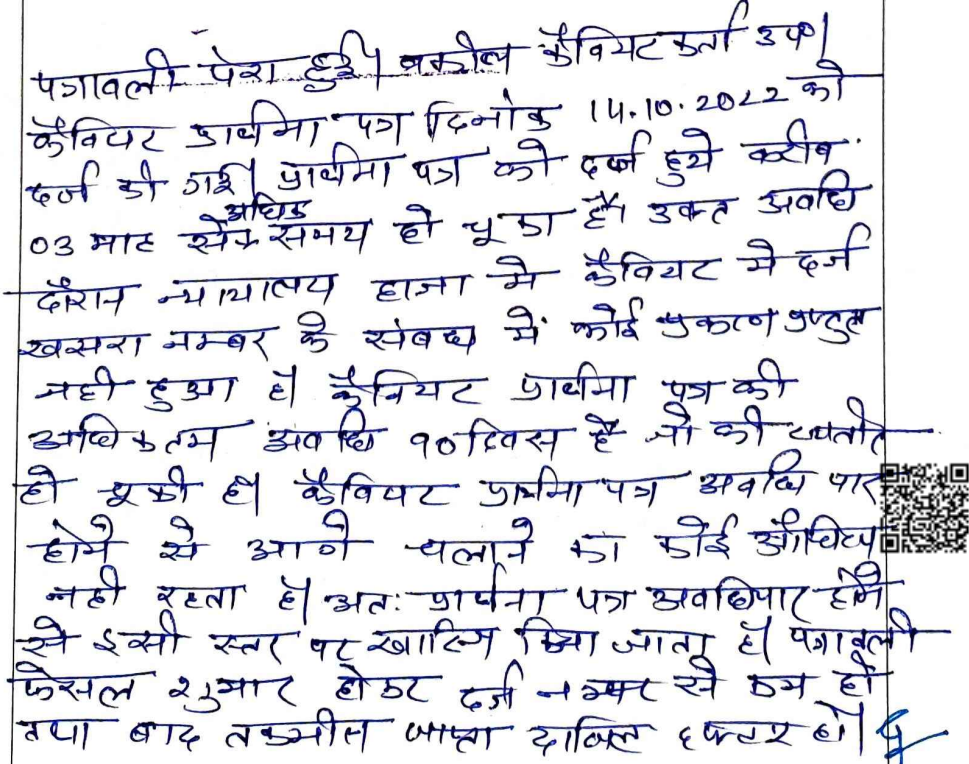 पत्रावली पेश हुई। वकील कैवियटकर्ता उप।
कैवियट प्रार्थना पत्र दिनांक 14.10.2022 को
दर्ज की गई। प्रार्थना पत्र को दर्ज हुये करीब
03 माह से अधिक समय हो चूका है। उक्त अवधि
दौरान न्यायालय हाजा मे कैवियट मे दर्ज
खसरा नम्बर के संबंध में कोई प्रकरण प्रस्तुत
नही हुआ है। कैवियट प्रार्थना पत्र की
अधिकतम अवधि 90 दिवस है जो की व्यतीत
हो चूकी है। कैवियट प्रार्थना पत्र अवधि पार
होने से आगे चलाने का कोई औचित्य
नही रहता है। अतः प्रार्थना पत्र अवधिपार होने
से इसी स्तर पर खारिज किया जाता है। पत्रावली
फैसल शुमार होकर दर्ज नम्बर से कम हो
तथा बाद तकमील जाप्ता दाखिल दफ्तर हो।